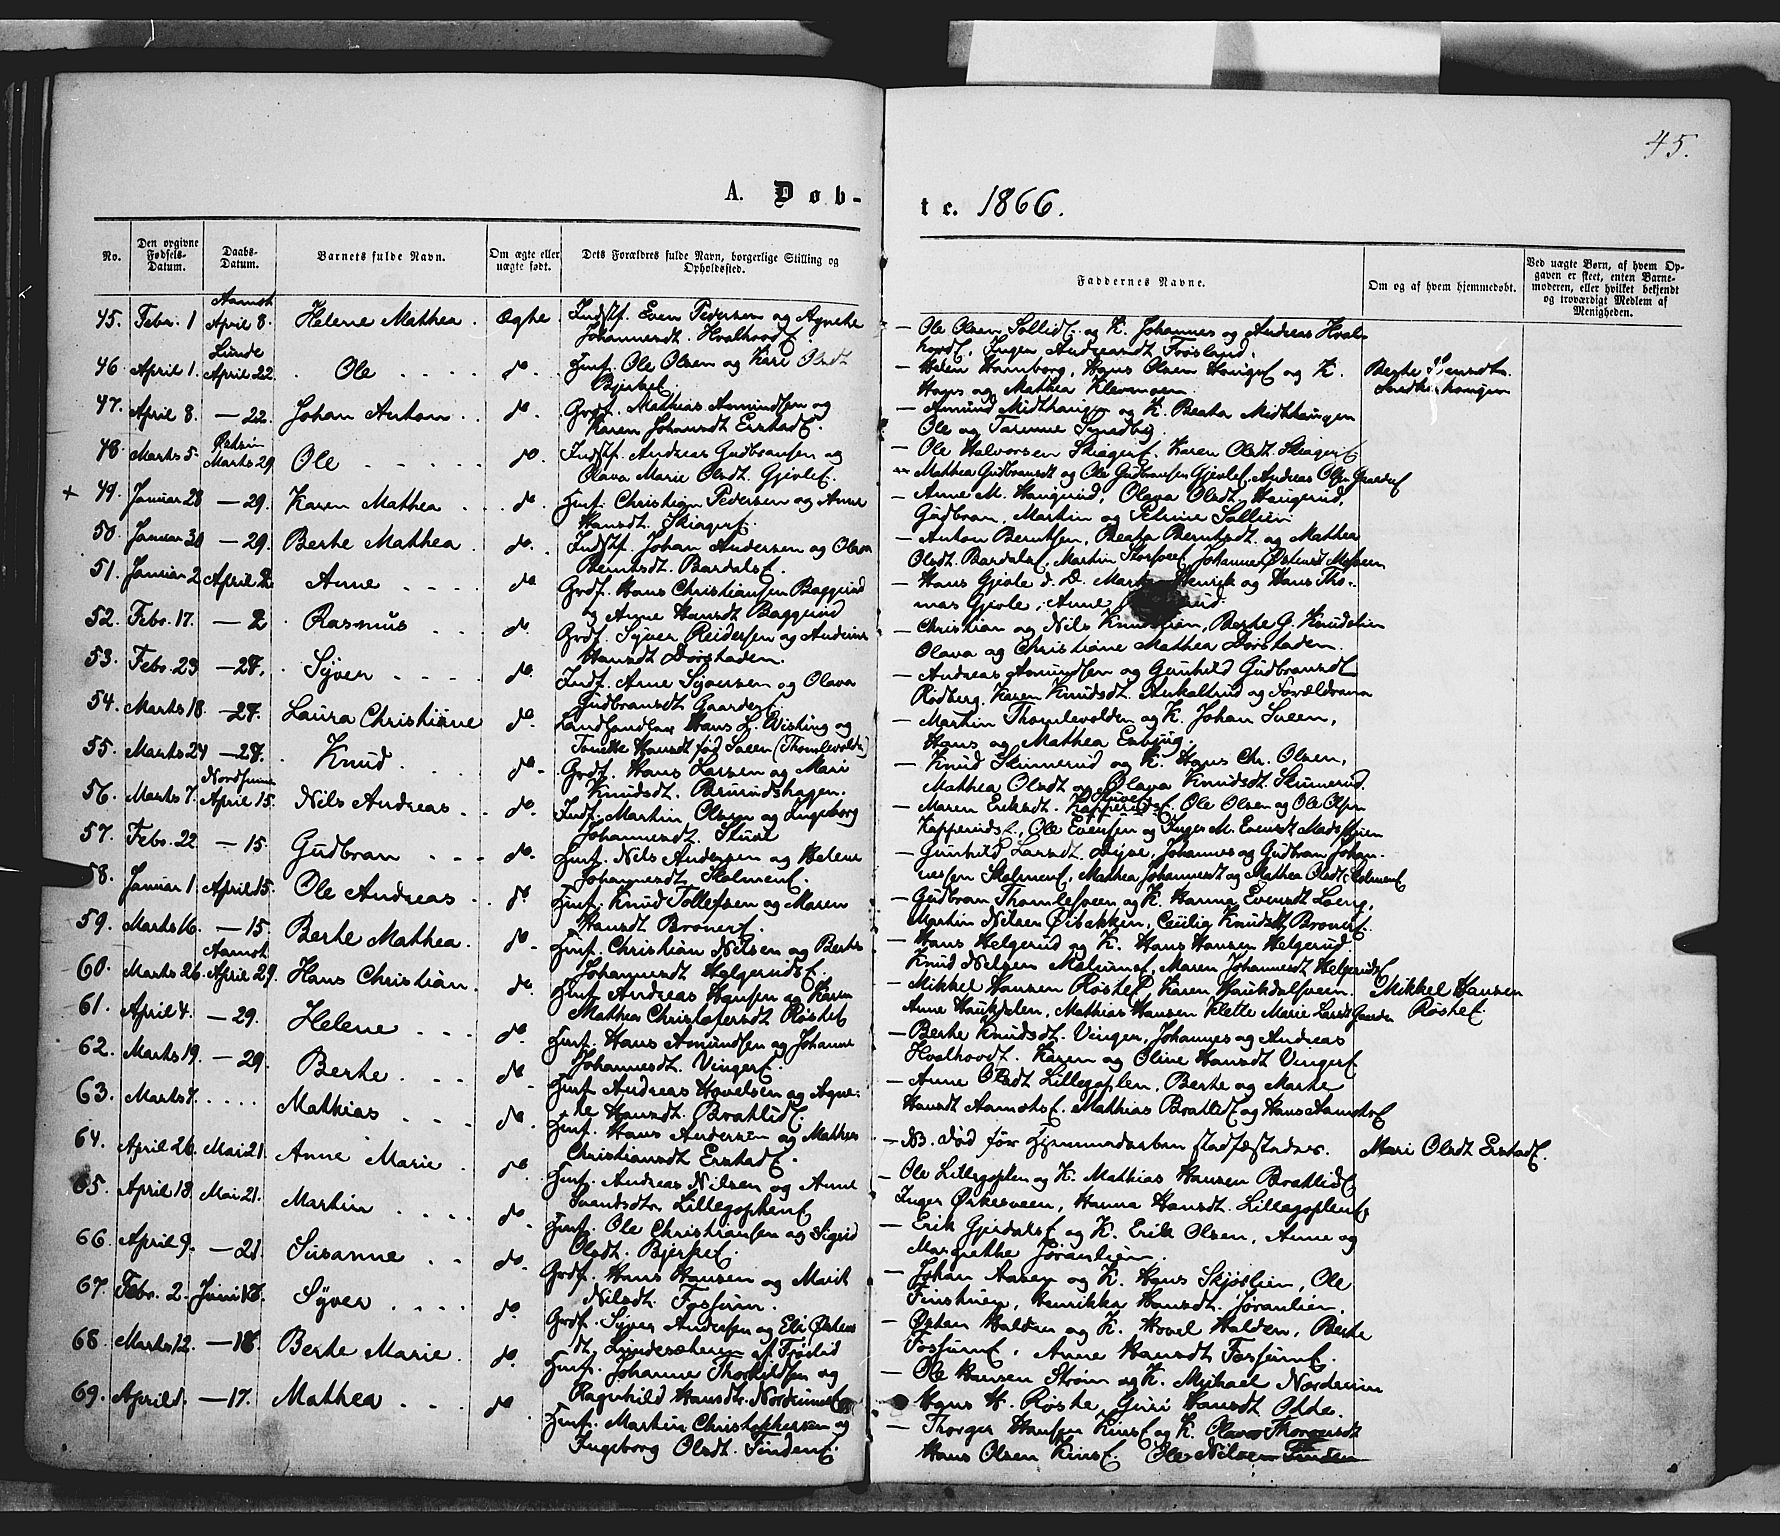 45.
A. Døb-
te. 1866.
No.
Den opgivne Fødsels-Datum.
Daabs-Datum.
Barnets fulde Navn.
Om ægte eller uægte født.
Dets Forældres fulde Navn, borgerlige Stilling og Opholdssted.
Faddernes Navne.
Om og af hvem hjemmedøbt.
Ved uægte Børn, af hvem Opgaven er skeet, enten Barnemoderen, eller hvilket bekjendt og troværdigt Medlem af Menigheden.
Aamot
45. Febr. 1 April 8. Helene Mathea. Ægte Indstf. Even Pedersen og Agnethe
Johannesdt. Hvalhovdf.
— Ole Olsen Sollidf. og K. Johannes og Andreas Hval-
hovdf. Inger Andreasdt Frøsland.
Lunde
46. April 1. April 22. Ole d°. Huusf. Ole Olsen og Kari Olsdt
Bjerkef.
Hamborg, Hans Olsen Haugef og K.
Hans og Mathea Klevengen
Berthe
47. April 8. — 22. Johan Anton d°. Grdf. Mathias Amundsen og
Karen Johansdt Erstadf.
— Amund Midthaugen og K. Beata Midthaugen
Ole og
48. Marts 5. Marts 29 Ole d°. Indstf. Andreas Gudbransen og
Olava Marie Olsdt. Gjøvlef.
— Ole Halvorsen Skiagerf. Karen Olsdt. Skiagerf
Mathea Gudbransdt og Ole Gudbransen Gjøvlef. Andreas Olsen
+ 49. Januar 28 — 29. Karen Mathea d°. Husf. Christian Pedersen og Anne
Hansdt. Skiagerf.
— Anne M. Haugerud, Olava Olsdt. Haugerud,
Gudbran, Martin og Petrine Sollien
50. Januar 30 — 29. Berthe Mathea d°. Indstf. Johan Andersen og Olava
Berntsdt. Bardalsf.
— Anton Berntsen, Beata Berntsdt. og Mathea
Olsdt. Bardalsf, Martin
51. Januar 2 April 2. Anne d°. Grdf. Hans Christiansen Baggerud
og Anne Hansdt Baggerud
— Hans Gjøvle d. Æ. Henrik og Hans Tho-
mas Gjøvle, Anne
52. Febr. 17. — 2 Rasmus d°. Grdf. Syver Reidersen og Andrine
Hansdt Dørstaden.
— Christian og Nils Knudslien, Berthe G. Knudslien
Olava og Christiane Mathea Dørstaden.
53. Febr. 23 — 27. Syver d°. Indf. Arne Syversen og Olava
Gudbransdt Gaarderf.
— Andreas Amundsen og Gunhild Gudbransdt
Rødberg, Karen Knudsdt.
54. Marts 18. — 27. Laura Christiane d°. Landhandler Hans L. Wisting og
Tonette Hansdt. fød Sveen (Thomlevolden)
— Martin Thomlevolden og K. Johan Sveen,
Hans og Mathea Enbjug.
55. Marts 24 — 27. Knud d°. Grdf. Hans Larsen og Mari
Knudsdt. Brurudshagen.
— Knud Skinnerud og K. Hans Chr. Olsen,
Mathea Olsdt og Olava Knudsdt. Skinnerud.
Nordsinne
56. Marts 7. April 15. Nils Andreas d°. Indf. Martin Olsen og Ingeborg
Johannesdt.
— Maren Eriksdt. Ole Olsen og Ole Olsen
Kapperudsf., Ole Evensen og Inger M. Evensdt
57. Febr. 22 — 15. Gudbran d°. Husf. Nils Andersen og Helene
Johannesdt. Skolmenf.
— Gunhild Larsdt. Johannes og Gudbran Johan-
nessen Skolmenf, Mathea Johannesdt og Mathea Olsdt. Skolmenf
58. Januar 1. April 15. Ole Andreas d°. Husf. Knud Tollefsen og Maren
Hansdt Bronerf.
— Gudbran Thomlesveen og K. Hanna Evensdt
Martin Nilsen Cecilie Knudsdt Bronerf.
59. Marts 16. — 15. Berthe Mathea. d°. Husf. Christian Nilsen og Berthe
Johannesdt Helgerudsf.
— Hans Helgerud og K. Hans Hansen Helgerud
Knud Nilsen Maren Johannesdt. Helgerudsf
Aamot
60. Marts 26. April 29. Hans Christian. d°. Husf. Andreas Hansen og Karen
Mathea Christofersdt Røstef
— Mikkel Hansen Røstef, Karen Haukdalsveen
Anne Haukdalen, Mathias Hansen Klette Marie Larsdt Gaarder
Mikkel Hansen
Røstef.
61. April 4. — 29. Helene d°. Husf. Hans Amundsen og Johanne
Johannesdt. Vingerf.
— Berthe Knudsdt. Vingen, Johannes og Andreas
Hvalhovdt. Karen og Oline Hansdt Vingerf
62. Marts 19. — 29. Berthe d°. Husf Andreas Hovelsen og Agne-
te Hansdt. Bratlidf.
— Anne Olsdt Lillegoplen, Berthe og Marthe
Hansdt Aamotsf. Mathias Bratlidf og Hans Aamotsf
63. Marts 7. Mathias d°. Husf. Hans Andersen og Mathea
Christiansdt Erstadf.
— NB. død før Hjemmedaaben stadfæstedes.
Mari Olsdt Erstadf.
64. April 26. Mai 21. Anne Marie d°. Husf. Andreas Nilsen og Anne
Svendsdtr. Lillegoplenf
— Ole Lillegoplen og K. Mathias Hansen Bratlidf
Inger Ørkesveen, Hanna Hansdt. Lillegoplenf
65. April 13. Mai 21. Martin d°. Husf. Ole Christiansen og Sigrid
Olsdt. Bjerkef.
— Erik Gjerdalsf og K. Erik Olsen, Anne og
Margrethe Jøranlien.
66. April 9. — 21. Susanne d°. Grdf. Hans Hansen og Marit
Nilsdt. Fossum.
— Johan Aasen og K. Hans Skjøslien, Ole
Finstuen, Henrikka Hansdt. Jøranlien.
67. Febr. 2. Juni 17. Syver d°. Grdf. Syver Andersen og Eli Østens
dt. Lundesæteren af Frøslid
— Østen Halden og K. Hovel Halden, Berthe
Fossumf. Anne Hansdt Fossumf.
68. Marts 12. — 17. Berthe Marie. d°. Husf. Johannes Thorkildsen og
Ragnhild Hansdtr. Nordrumsf
— Ole Hansen Strøm og K. Michael Nordrum
Hans H. Røste, Guri Hansdt Odde.
69. April 1. — 17. Mathea d°. Husf. Martin Christophersen og
Ingeborg Olsdt. Tindenf.
— Thorger Hansen Kinsf og K. Olava Thorgersdt
Hans Olsen Kinsf. Ole Nilsen Tinden